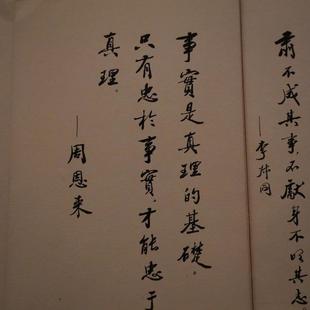 不成其事，不獻身不明其志。
——李
事實是真理的基礎。
只有忠於事實，才能忠于
真理。
——周恩来